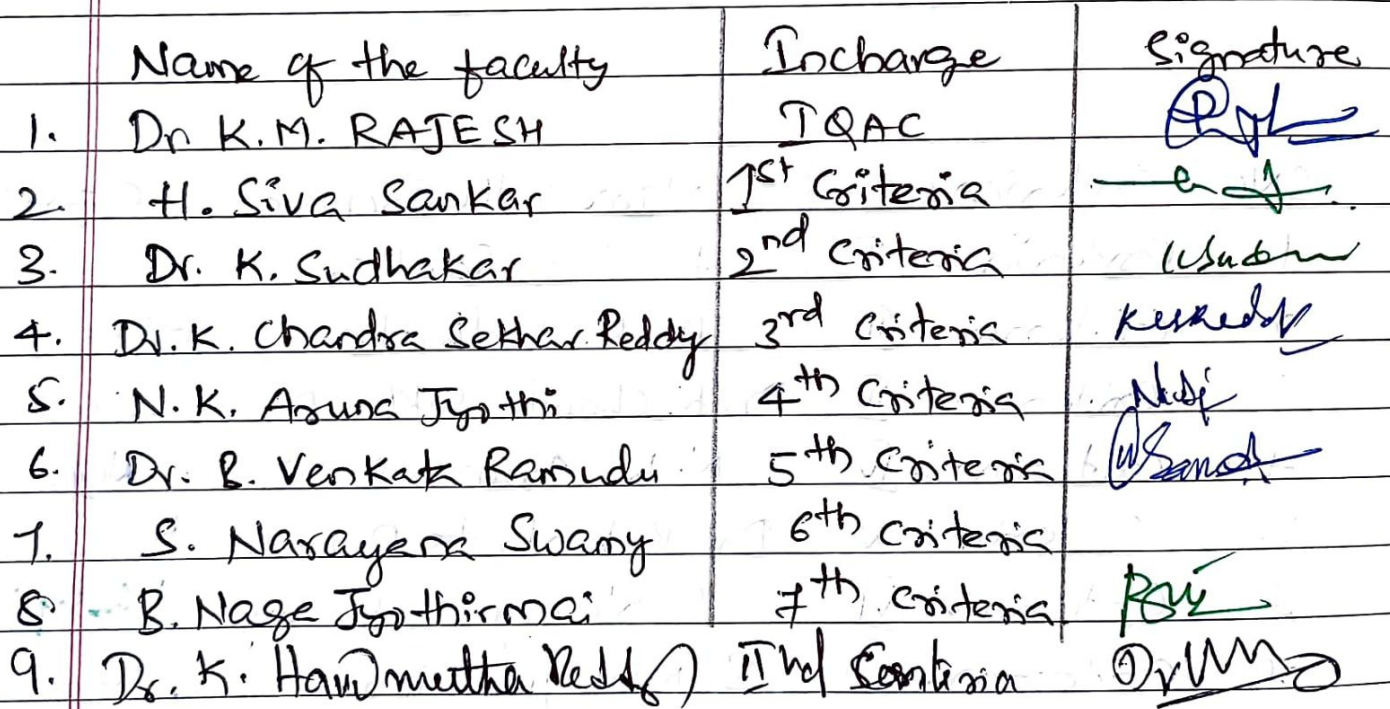 Name of the faculty Incharge Signature
1. Dr K.M. RAJESH IQAC
2. H. Siva Sankar 1st Criteria
3. Dr. K. Sudhakar 2nd Criteria
4. Dr. K. Chandra Sekhar Reddy 3rd Criteria
5. N. K. Aruna Jyothi 4th Criteria
6. Dr. B. Venkata Ramudu 5th Criteria
7. S. Narayana Swamy 6th Criteria
8 B. Naga Jyothirmai 7th Criteria
9. Dr. K. Reddy IInd